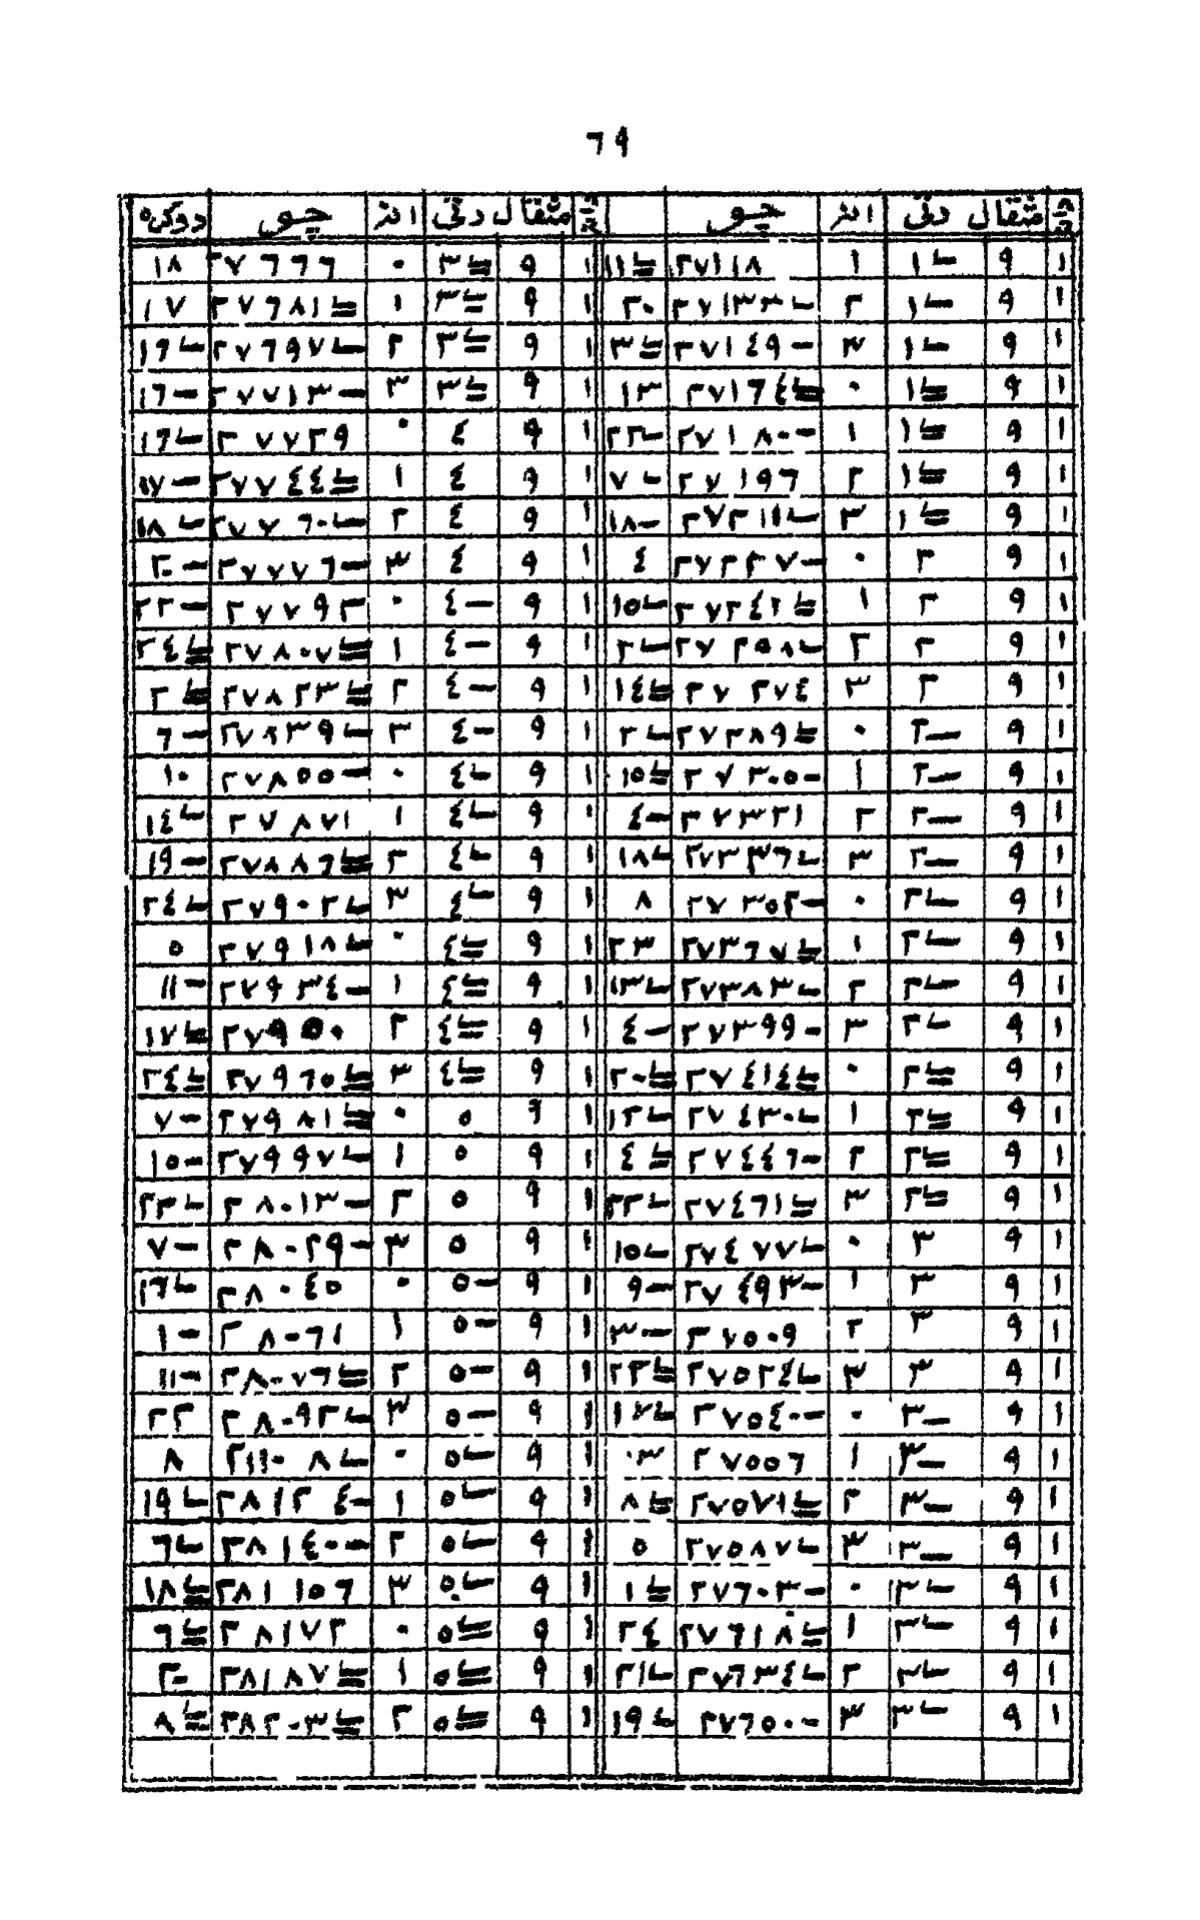 ٦٩
مثقال دقي انز چو مثقال دقي انز چو دوكره
١ ٩ ١ـ ١ ٢٧١١٨ ١١= ١ ٩ ٣= ٠ ٢٧٦٦٦ ١٨
١ ٩ ١ـ ٢ ٢٧١٣٣ـ ٢٠ ١ ٩ ٣= ١ ٢٧٦٨١= ١٧
١ ٩ ١ـ ٣ ٢٧١٤٩- ٣= ١ ٩ ٣= ٢ ٢٧٦٩٧ـ ١٦ـ
١ ٩ ١= ٠ ٢٧١٦٤= ١٣ ١ ٩ ٣= ٣ ٢٧٧١٣- ١٦-
١ ٩ ١= ١ ٢٧١٨٠- ٢٢ـ ١ ٩ ٤ ٠ ٢٧٧٢٩ ١٦ـ
١ ٩ ١= ٢ ٢٧١٩٦ ٧ـ ١ ٩ ٤ ١ ٢٧٧٤٤= ١٧-
١ ٩ ١= ٣ ٢٧٢١١ـ ١٨- ١ ٩ ٤ ٢ ٢٧٧٦٠ـ ١٨ـ
١ ٩ ٢ ٠ ٢٧٢٢٧- ٤ ١ ٩ ٤ ٣ ٢٧٧٧٦- ٢٠-
١ ٩ ٢ ١ ٢٧٢٤٢= ١٥ـ ١ ٩ ٤- ٠ ٢٧٧٩٢ ٢٢-
١ ٩ ٢ ٢ ٢٧٢٥٨ـ ٢ـ ١ ٩ ٤- ١ ٢٧٨٠٧= ٢٤=
١ ٩ ٢ ٣ ٢٧٢٧٤ ١٤= ١ ٩ ٤- ٢ ٢٧٨٢٣= ٢=
١ ٩ ٢- ٠ ٢٧٢٨٩= ٢ـ ١ ٩ ٤- ٣ ٢٧٨٣٩ـ ٦-
١ ٩ ٢- ١ ٢٧٣٠٥- ١٥= ١ ٩ ٤ـ ٠ ٢٧٨٥٥- ١٠
١ ٩ ٢- ٢ ٢٧٣٢١ ٤- ١ ٩ ٤ـ ١ ٢٧٨٧١ ١٤ـ
١ ٩ ٢- ٣ ٢٧٣٣٦ـ ١٨ـ ١ ٩ ٤ـ ٢ ٢٧٨٨٦= ١٩-
١ ٩ ٢ـ ٠ ٢٧٣٥٢- ٨ ١ ٩ ٤ـ ٣ ٢٧٩٠٢ـ ٢٤ـ
١ ٩ ٢ـ ١ ٢٧٣٦٧= ٢٣ ١ ٩ ٤= ٠ ٢٧٩١٨ـ ٥
١ ٩ ٢ـ ٢ ٢٧٣٨٣ـ ١٣ـ ١ ٩ ٤= ١ ٢٧٩٣٤- ١١-
١ ٩ ٢ـ ٣ ٢٧٣٩٩- ٤- ١ ٩ ٤= ٢ ٢٧٩٥٠ ١٧=
١ ٩ ٢= ٠ ٢٧٤١٤= ٢٠= ١ ٩ ٤= ٣ ٢٧٩٦٥= ٢٤=
١ ٩ ٢= ١ ٢٧٤٣٠ـ ١٢ـ ١ ٩ ٥ ٠ ٢٧٩٨١= ٧-
١ ٩ ٢= ٢ ٢٧٤٤٦- ٤= ١ ٩ ٥ ١ ٢٧٩٩٧ـ ١٥-
١ ٩ ٢= ٣ ٢٧٤٦١= ٢٢ـ ١ ٩ ٥ ٢ ٢٨٠١٣- ٢٣ـ
١ ٩ ٣ ٠ ٢٧٤٧٧ـ ١٥ـ ١ ٩ ٥ ٣ ٢٨٠٢٩- ٧-
١ ٩ ٣ ١ ٢٧٤٩٣- ٩- ١ ٩ ٥- ٠ ٢٨٠٤٥ ١٦ـ
١ ٩ ٣ ٢ ٢٧٥٠٩ ٣- ١ ٩ ٥- ١ ٢٨٠٦١ ١-
١ ٩ ٣ ٣ ٢٧٥٢٤ـ ٢٣= ١ ٩ ٥- ٢ ٢٨٠٧٦= ١١-
١ ٩ ٣- ٠ ٢٧٥٤٠- ١٧ـ ١ ٩ ٥- ٣ ٢٨٠٩٢ـ ٢٢
١ ٩ ٣- ١ ٢٧٥٥٦ ١ ٩ ٥ـ ٠ ٨
١ ٩ ٣- ٢ ٢٧٥٧١= ٨= ١ ٩ ٥ـ ١ ٢٨١٢٤- ١٩ـ
١ ٩ ٣- ٣ ٢٧٥٨٧ـ ٥ ١ ٩ ٥ـ ٢ ٢٨١٤٠- ٦ـ
١ ٩ ٣ـ ٠ ٢٧٦٠٣- ١= ١ ٩ ٥ـ ٣ ٢٨١٥٦ ١٨=
١ ٩ ٣ـ ١ ٢٧٦١٨= ٢٤ ١ ٩ ٥= ٠ ٢٨١٧٢ ٦=
١ ٩ ٣ـ ٢ ٢٧٦٣٤ـ ٢١ـ ١ ٩ ٥= ١ ٢٨١٨٧= ٢٠
١ ٩ ٣ـ ٣ ٢٧٦٥٠- ١٩ـ ١ ٩ ٥= ٢ ٢٨٢٠٣= ٨=